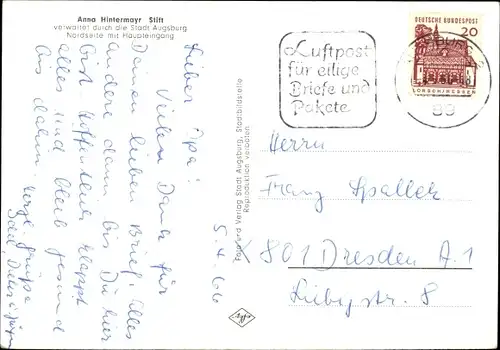 Anna Hintermayr Stift
verwaltet durch die Stadt Augsburg
Nordseite mit Haupteingang
Lieber Opa!
Vielen Dank für
Deinen lieben Brief. Alles
andere dann bis Du hier
bist. Hoffentlich klappt
alles und bleib gesund
bis dahin. Herzl. Grüße
5.4.66
Foto und Verlag Stadt Augsburg, Stadtbildstelle
Reproduktion verboten
Agfa
Luftpost
für eilige
Briefe und
Pakete
DEUTSCHE BUNDESPOST
20
LORSCH/HESSEN
89
Herrn
Franz
801 Dresden A.1
8